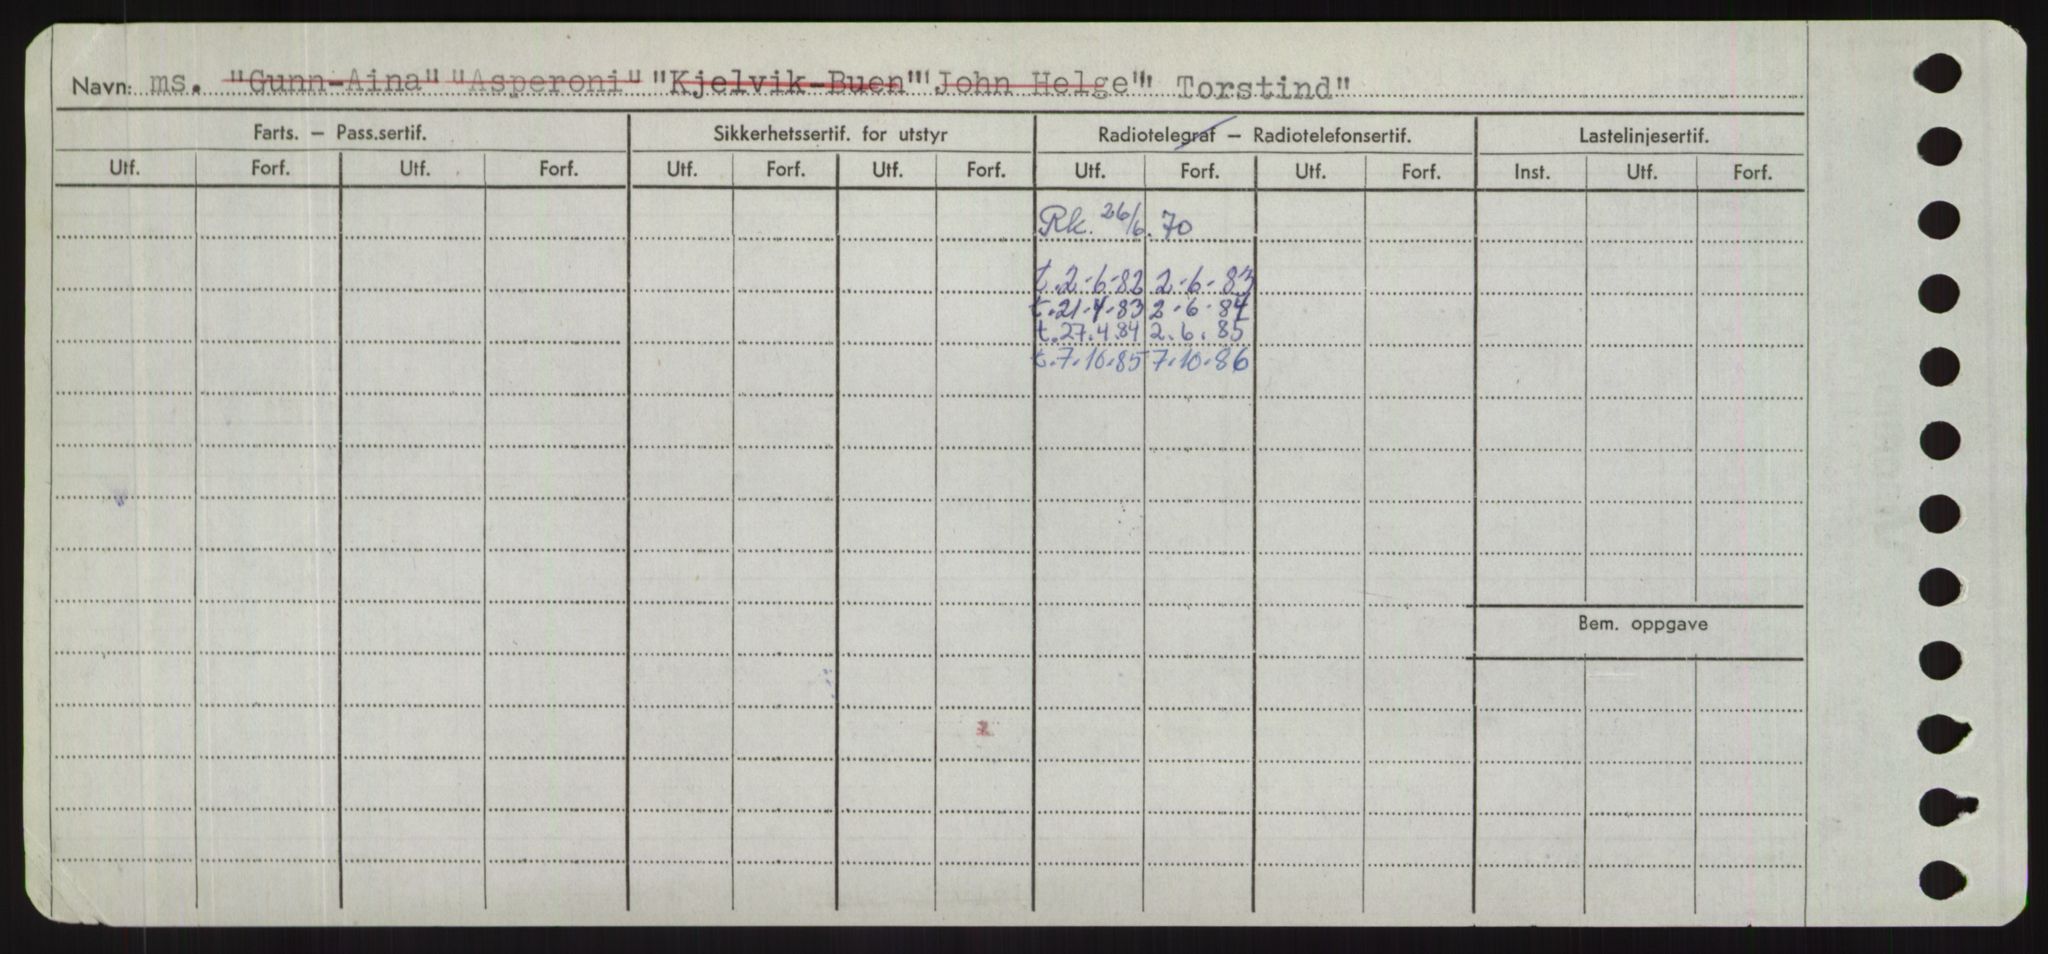 Navn: ms. "Gunn-Aina" "Asperoni" "Kjelvik-Buen" "John Helge" " Torstind"
Farts. – Pass.sertif. Sikkerhetssertif. for utstyr Radiotelegraf – Radiotelefonsertif. Lastelinjesertif.
Utf. Forf. Utf. Forf. Utf. Forf. Utf. Forf. Utf. Forf. Utf. Forf. Inst. Utf. Forf.
Rk. 26/6.70
t.2-6-82 2-6-83
t.21.4.83 2-6-84
t.27.4.84 2.6.85
t.7.10.85 7.10.86
Bem. oppgave